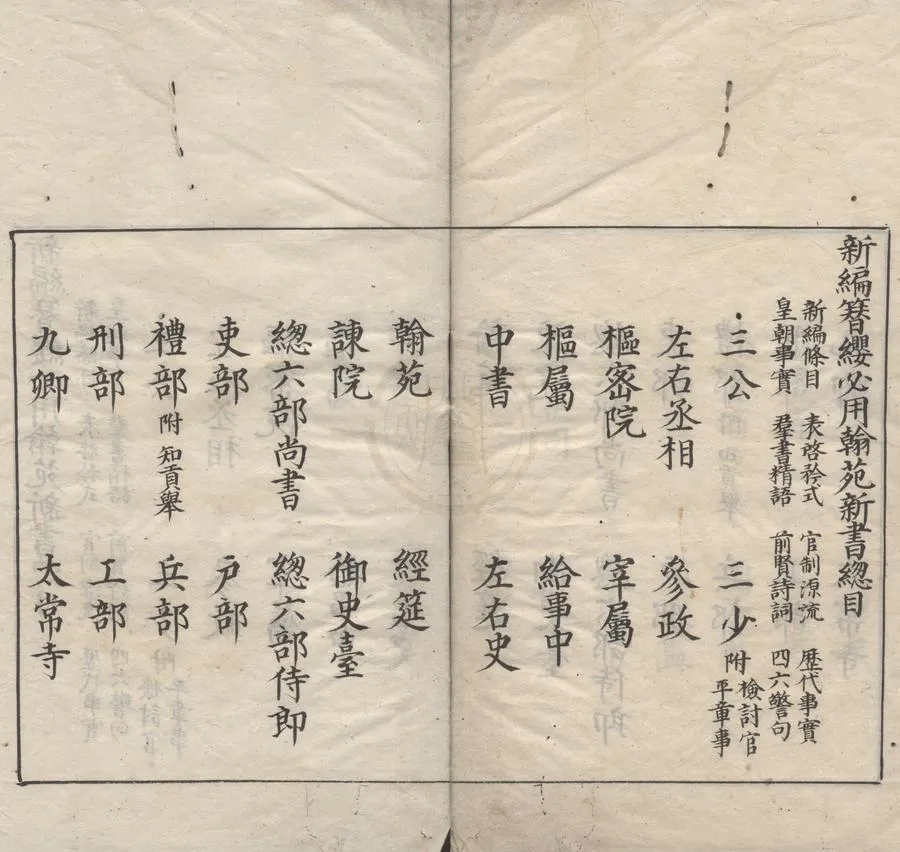 新編簪纓必用翰苑新書總目
新編條目 表啓矜式 官制源流 歷代事實
皇朝事實 羣書精語 前賢詩詞 四六警句
三公 三少 附 檢討官 平章事
左右丞相 參政
樞密院 宰屬
樞屬 給事中
中書 左右史
翰苑 經筵
諫院 御史臺
總六部尚書 總六部侍郎
吏部 戶部
禮部 附 知貢舉 兵部
刑部 工部
九卿 太常寺